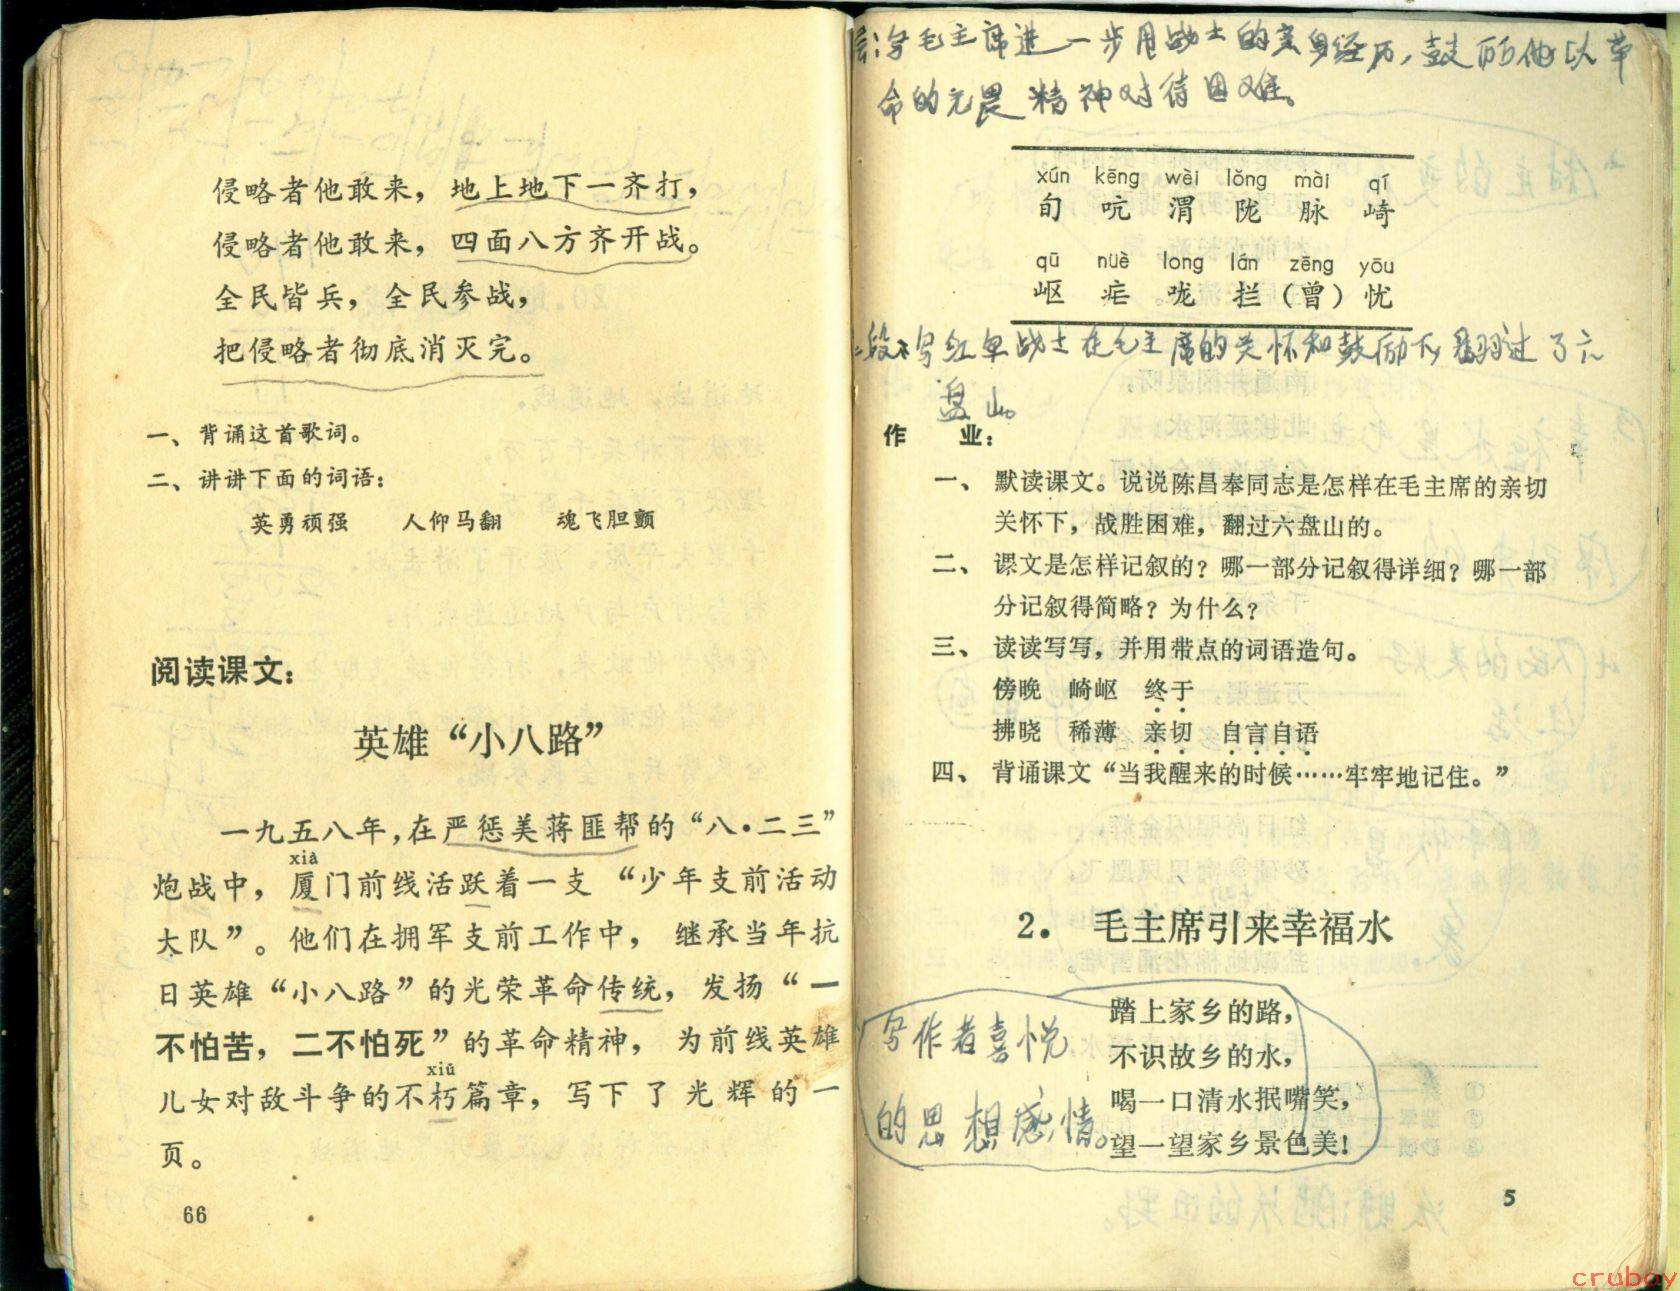 侵略者他敢来，地上地下一齐打，
侵略者他敢来，四面八方齐开战。
全民皆兵，全民参战，
把侵略者彻底消灭完。
一、背诵这首歌词。
二、讲讲下面的词语：
英勇顽强 人仰马翻 魂飞胆颤
阅读课文：
英雄“小八路”
一九五八年，在严惩美蒋匪帮的“八·二三”
xià
炮战中，厦门前线活跃着一支“少年支前活动
大队”。他们在拥军支前工作中，继承当年抗
日英雄“小八路”的光荣革命传统，发扬“一
不怕苦，二不怕死”的革命精神，为前线英雄
xiǔ
儿女对敌斗争的不朽篇章，写下了光辉的一
页。
66
层：写毛主席进一步用战士的亲身经历，鼓励他以革
命的无畏精神对待困难。
xún kēng wèi lǒng mài qí
旬 吭 渭 陇 脉 崎
qū nüè long lán zēng yōu
岖 疟 咙 拦 （曾） 忧
段：写红军战士在毛主席的关怀和鼓励下翻过了六
盘山。
作 业：
一、默读课文。说说陈昌奉同志是怎样在毛主席的亲切
关怀下，战胜困难，翻过六盘山的。
二、课文是怎样记叙的？哪一部分记叙得详细？哪一部
分记叙得简略？为什么？
三、读读写写，并用带点的词语造句。
傍晚 崎岖 终于
拂晓 稀薄 亲切 自言自语
四、背诵课文“当我醒来的时候……牢牢地记住。”
2. 毛主席引来幸福水
踏上家乡的路，
不识故乡的水，
喝一口清水抿嘴笑，
望一望家乡景色美！
写作者喜悦
的思想感情。
5
crubay